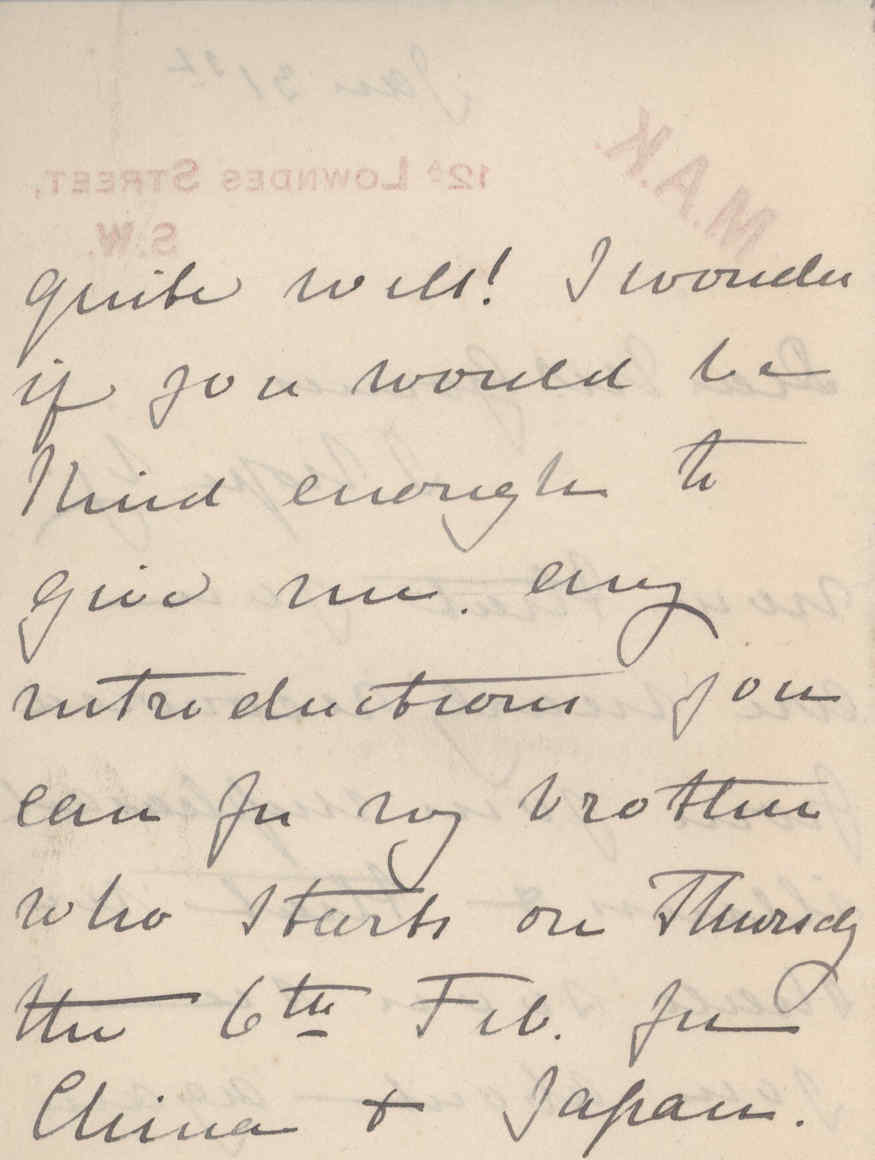 Jan 31st
M.A.K.
12A LOWNDES STREET,
S.W.
quite well! I wonder
if you would be
kind enough to
give me any
introductions you
can for my brother
who starts on Thursdy
the 6th Feb. for
China & Japan.